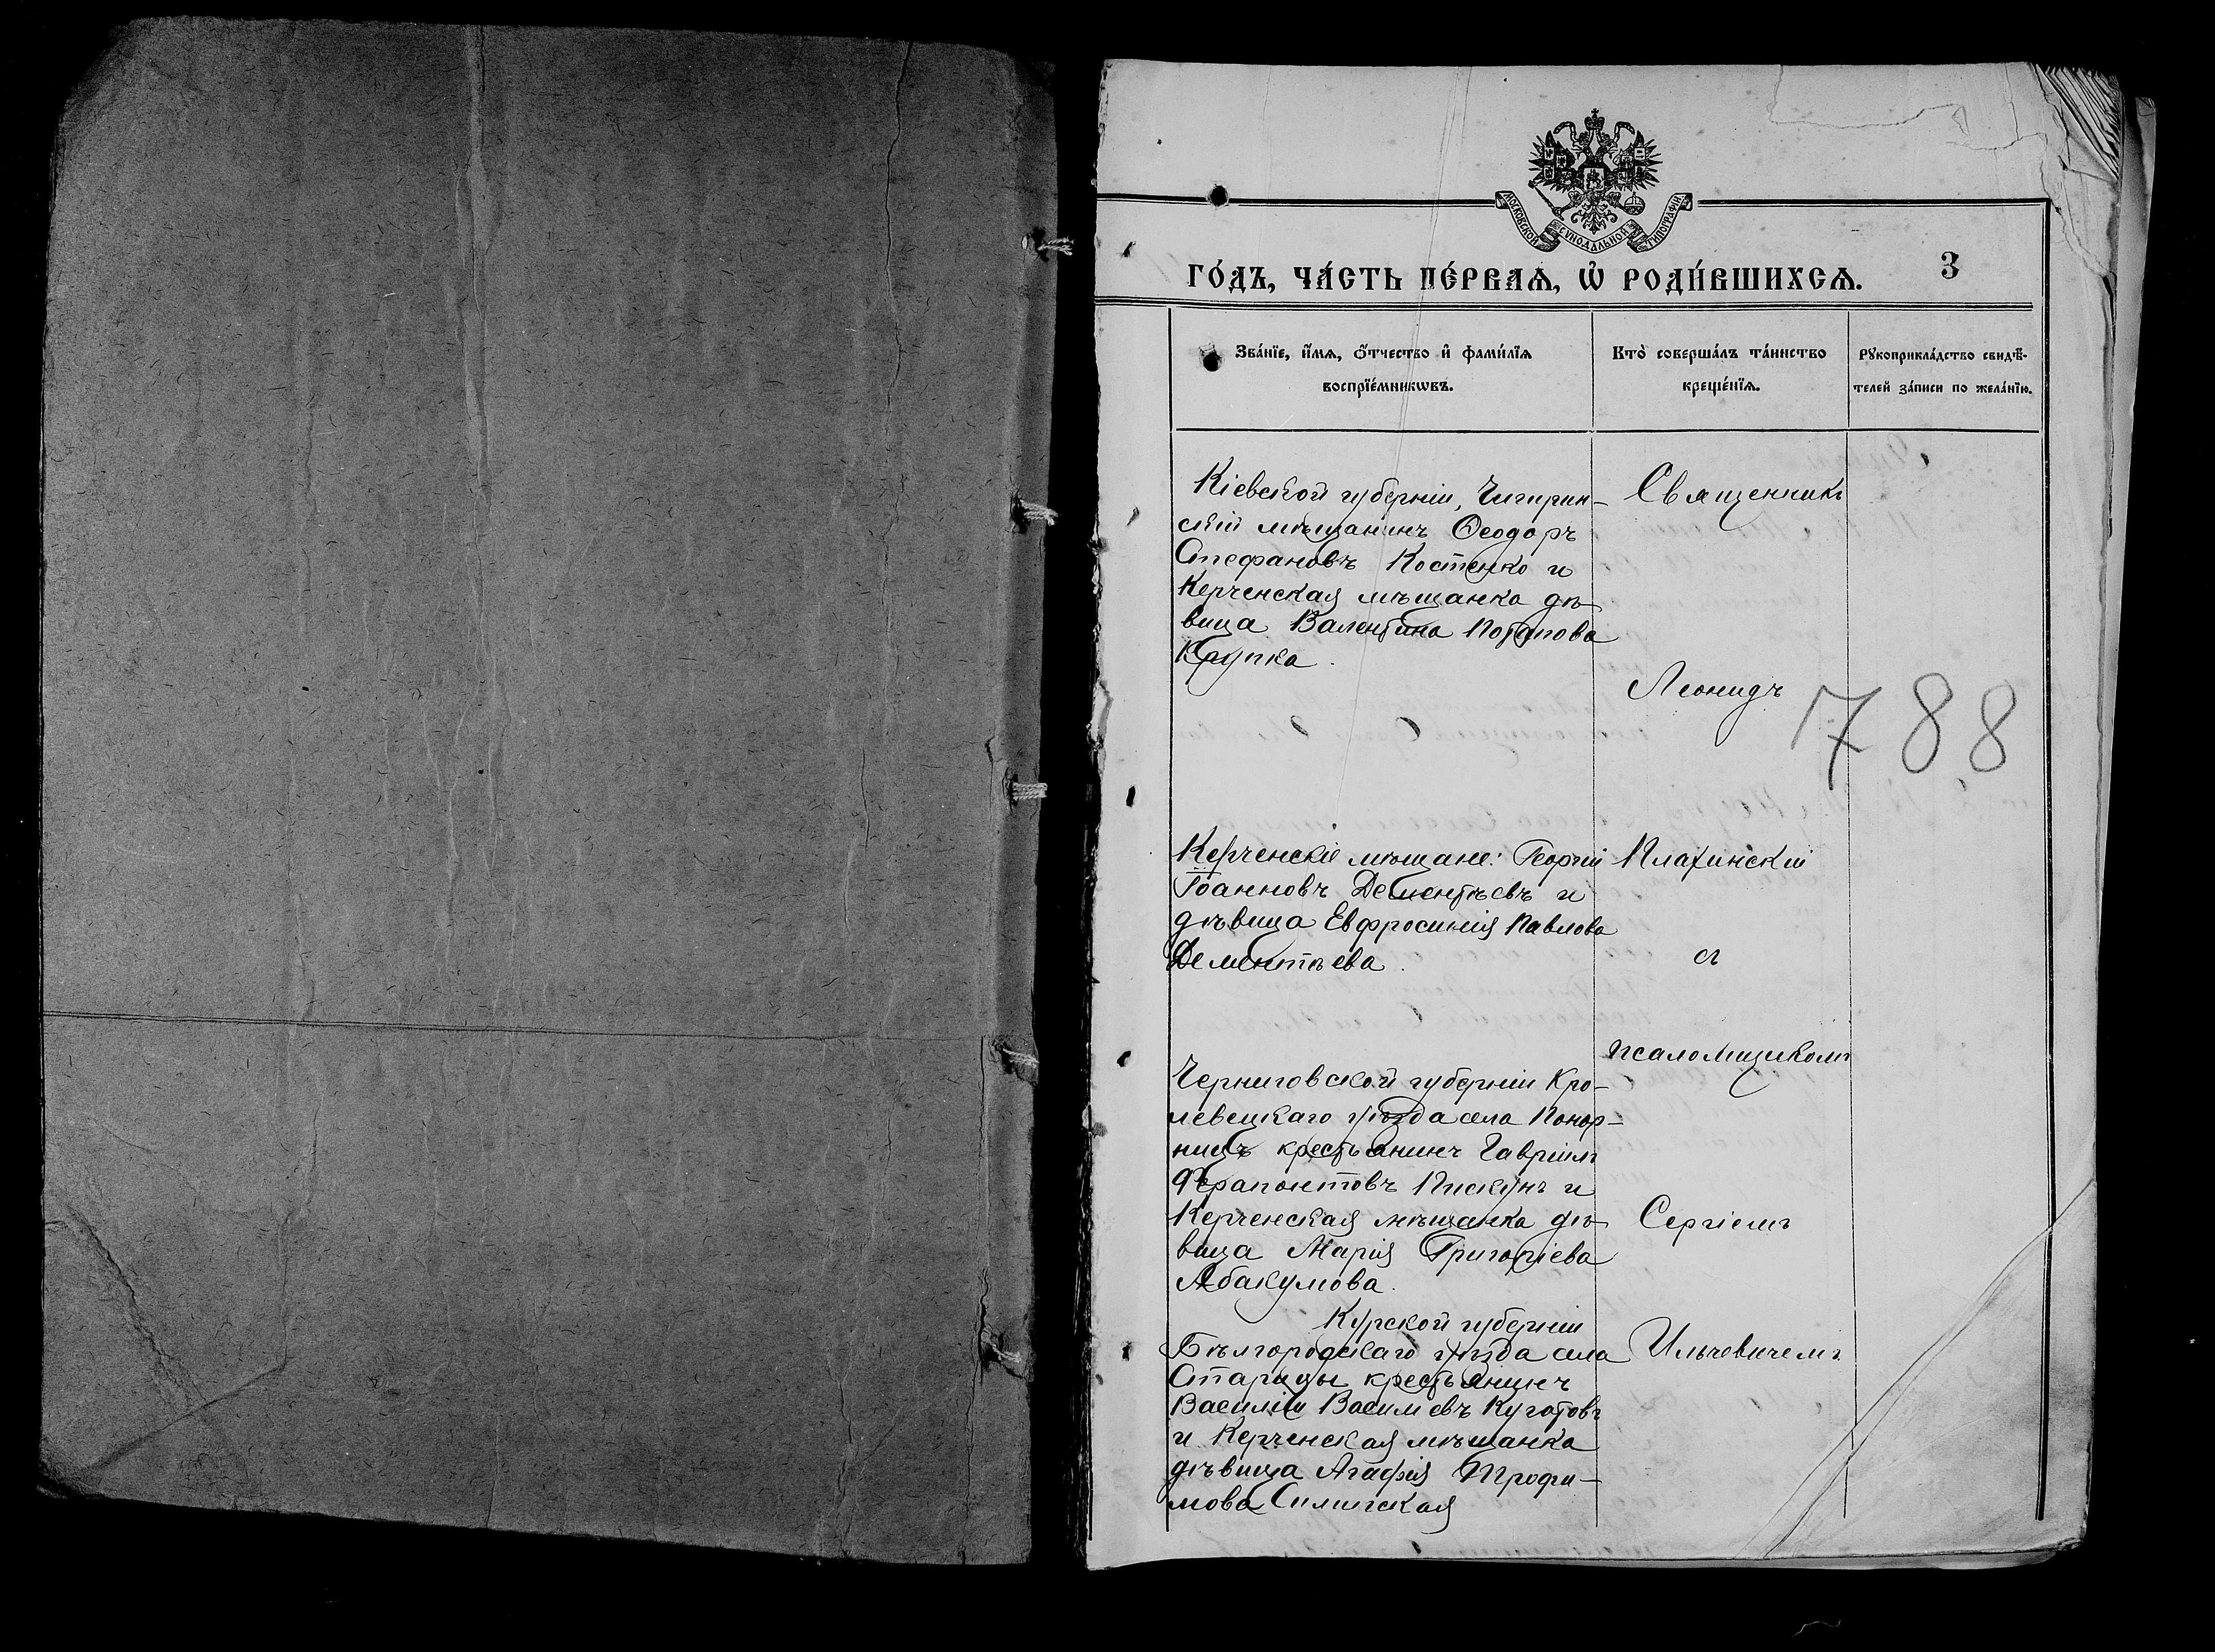 МОСКОВСКОЙ СѴНОДАЛЬНОЙ ТИПОГРАФІИ
ГО́ДЪ, ЧА́СТЬ ПЕ́РВАѦ, Ѡ҆ РОДИ́ВШИХСѦ.
3
Зва́нїе, и҆́мѧ, ѻ҆́тчество и҆ фами́лїѧ
воспрїе́мникѡвъ.
Кто̀ соверша́лъ та́инство
креще́нїѧ.
Рꙋкоприкла́дство свидѣ́-
телей за́писи по жела́нїю.
Кіевской губерніи, Чигирин-
скій мѣщанинъ Ѳеодоръ
Стефановъ Костенко и
Керченская мѣщанка дѣ-
вица Валентина Потапова
Крупка.
Керченскіе мѣщане: Георгій
Іоанновъ Дементьевъ и
дѣвица Евфросинія Павлова
Дементьева.
Черниговской губерніи Кро-
левецкаго уѣзда села Понор-
ницъ крестьянинъ Гавріилъ
Ферапонтовъ Пискунъ и
Керченская мѣщанка дѣ-
вица Марія Григоріева
Абакумова.
Курской губерніи
Бѣлгородскаго уѣзда села
Старицы крестьянинъ
Василій Васильевъ
и Керченская мѣщанка
дѣвица Агафія Трофи-
мова
Священникъ
Леонидъ
788
съ
псаломщикомъ
Сергіемъ
Ильчевичемъ